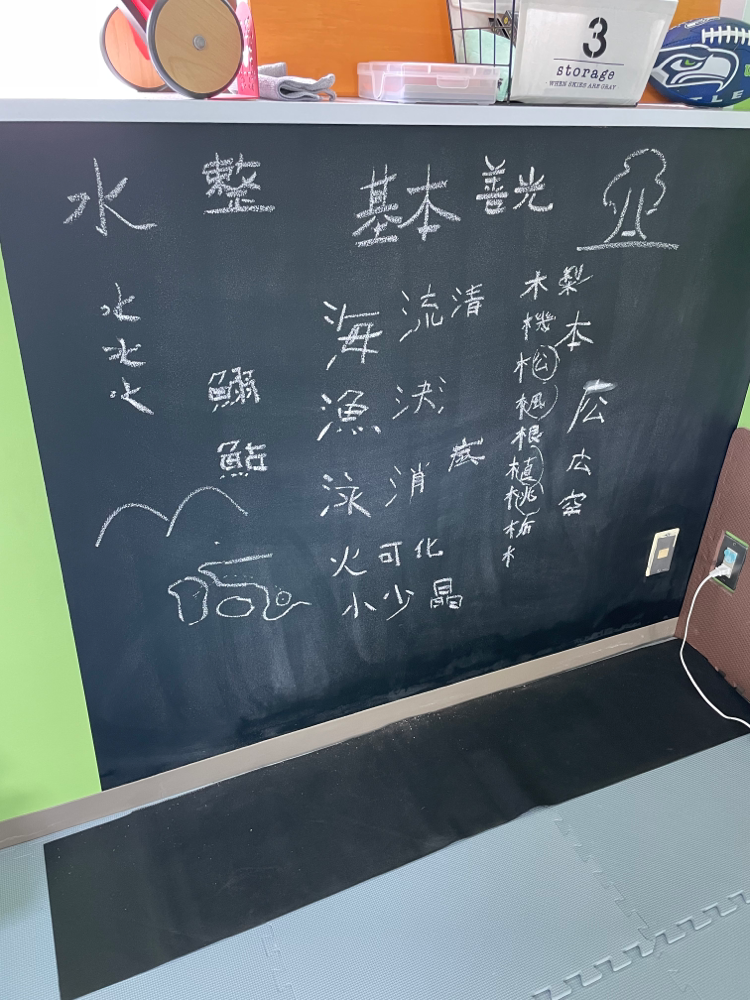 3
storage
WHEN SKIES ARE GRAY
水 整 基本 善光
水
水
水
鰯
鮎
海 流 清
漁 決
泳 消
火 可 化
小 少 晶
木 梨
機 本
松
楓
根
植
桃
木
広
空